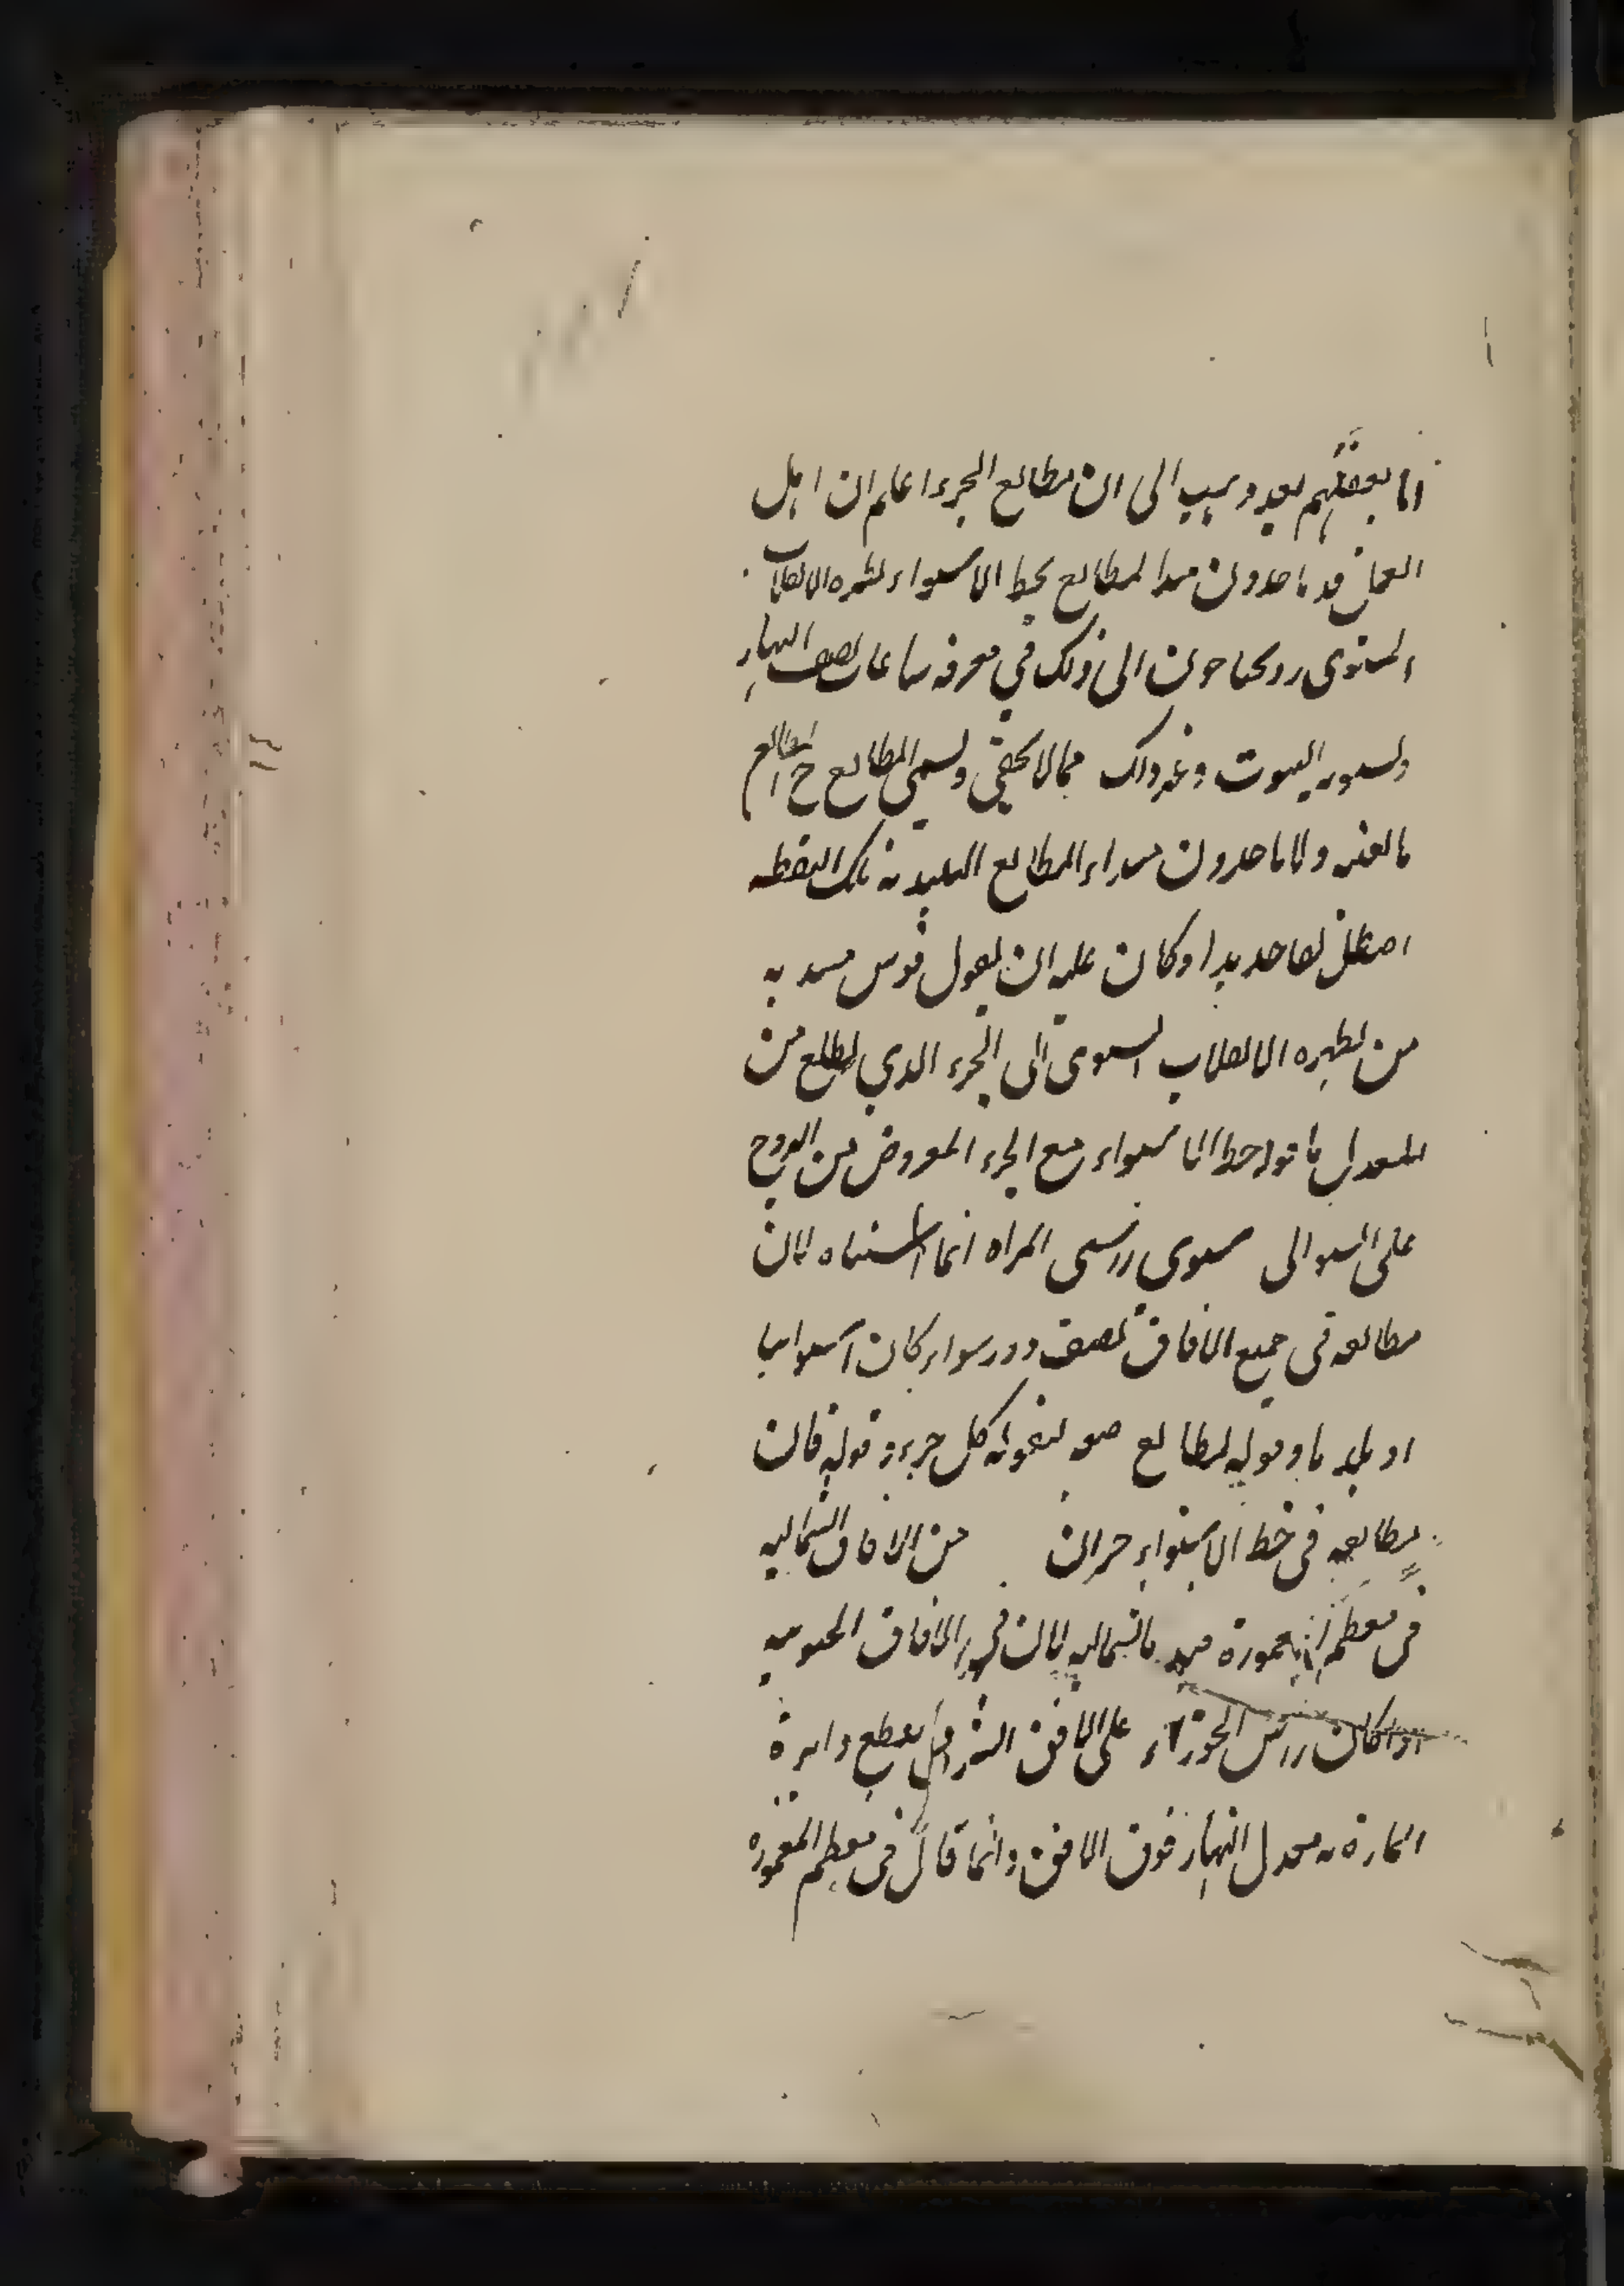 اما بعضهم بعد ونسب الى ان مطالع الجزء اعلم ان اهل
العمل قد ياخذون مبدا لمطالع بخط الاستواء نظيره الانقلاب
الشتوى ويحتاجون الى ذلك في معرفة ساعات نصف النهار
وتسويه البيوت وغير ذلك مما لا يخفى وتسمى المطالع ح المطالع
ولا ياخذون مبداء المطالع البلدية تلك النقطه
اصلا وكان عليه ان يقول قوس مبتديه
من نظيره الانقلاب الشتوى الى الجزء الذي يطلع من
المعدل بافق خط الاستواء مع الجزء المفروض من البروج
على التوالى سوى راسى المراه انما استثناه لان
مطالعه فى جميع الافاق نصف دور سواء كان استوائيا
او بلديا وقوله لمطالع صفه لقوله كل جزء وقوله فان
مطالعه فى خط الاستواء جزان من الافاق الشماليه
فى معظم المعموره قيد بالشماليه لان فى الافاق الجنوبيه
اذا كان راس الجوزاء على الافق الشرقى يقطع دايرة
الماره معدل النهار فوق الافق وانما قال فى معظم المعموره